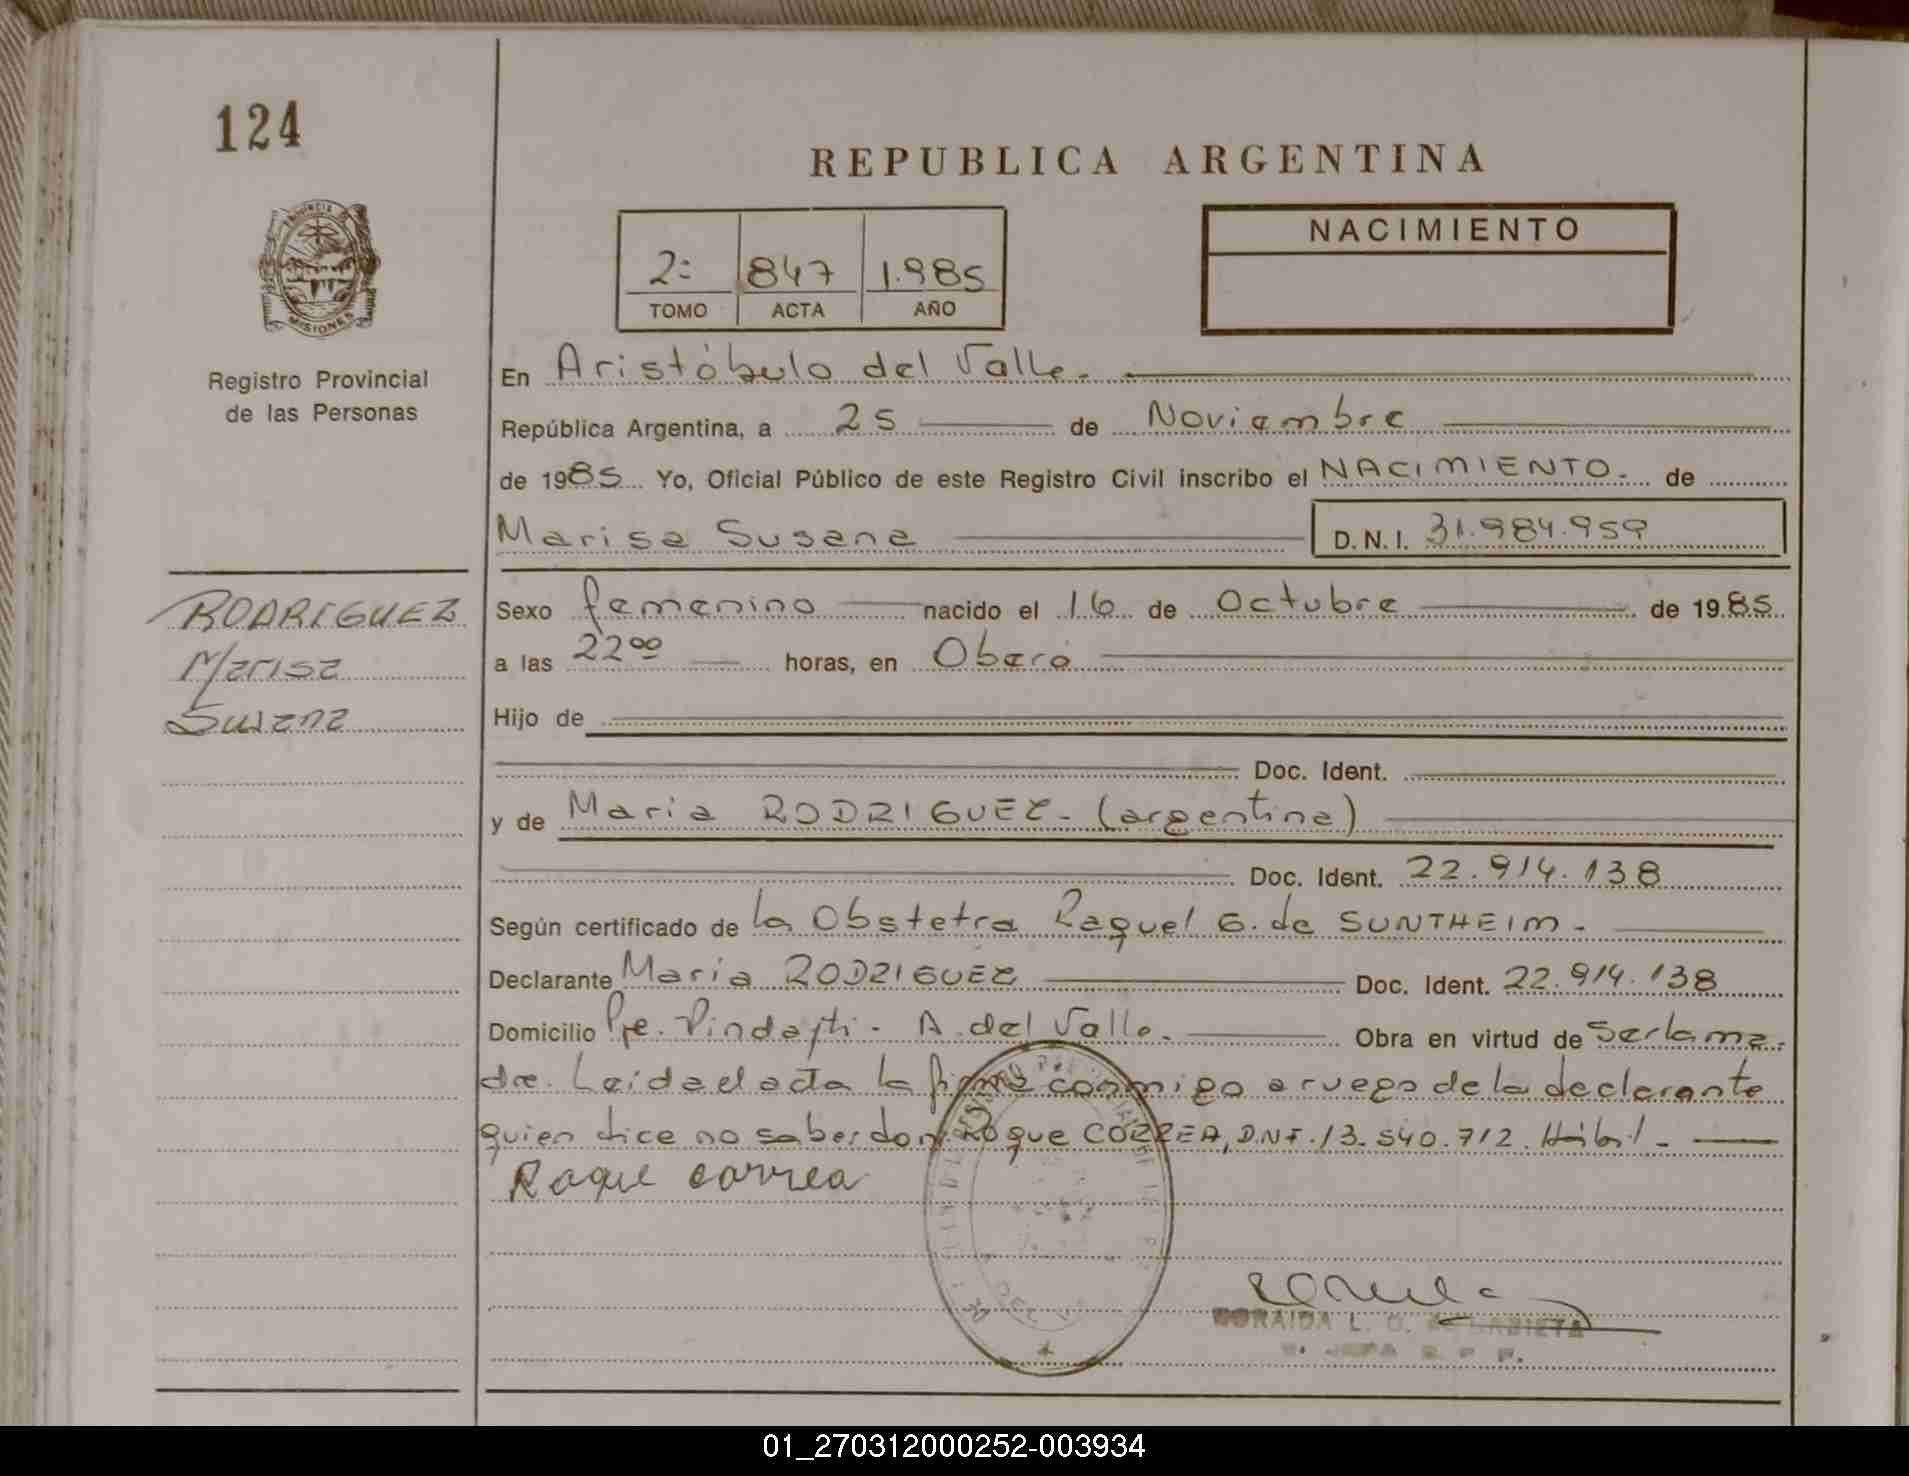 124
REPUBLICA ARGENTINA
NACIMIENTO
2º 847 1.985
TOMO ACTA AÑO
MISIONES
Registro Provincial
de las Personas
En Aristóbulo del Valle.
República Argentina, a 25 de Noviembre
de 1985 Yo, Oficial Público de este Registro Civil inscribo el NACIMIENTO. de
Marisa Susana D.N.I. 31.984.959
RODRIGUEZ
Marisa
Susana
Sexo femenino nacido el 16 de Octubre de 1985
a las 22⁰⁰ horas, en Oberá
Hijo de
Doc. Ident.
y de Maria RODRIGUEZ- (argentina)
Doc. Ident. 22.914.138
Según certificado de la Obstetra Raquel G. de SUNTHEIM.
Declarante Maria RODRIGUEZ Doc. Ident. 22.914.138
Domicilio A. del Valle. Obra en virtud de Ser la ma-
dre. Leida el acta la firma conmigo a ruego de la declarante
quien dice no saber don Roque CORREA, D.N.I. 13.540.712. Hábil.
Roque correa
ZORAIDA L.
01_270312000252-003934